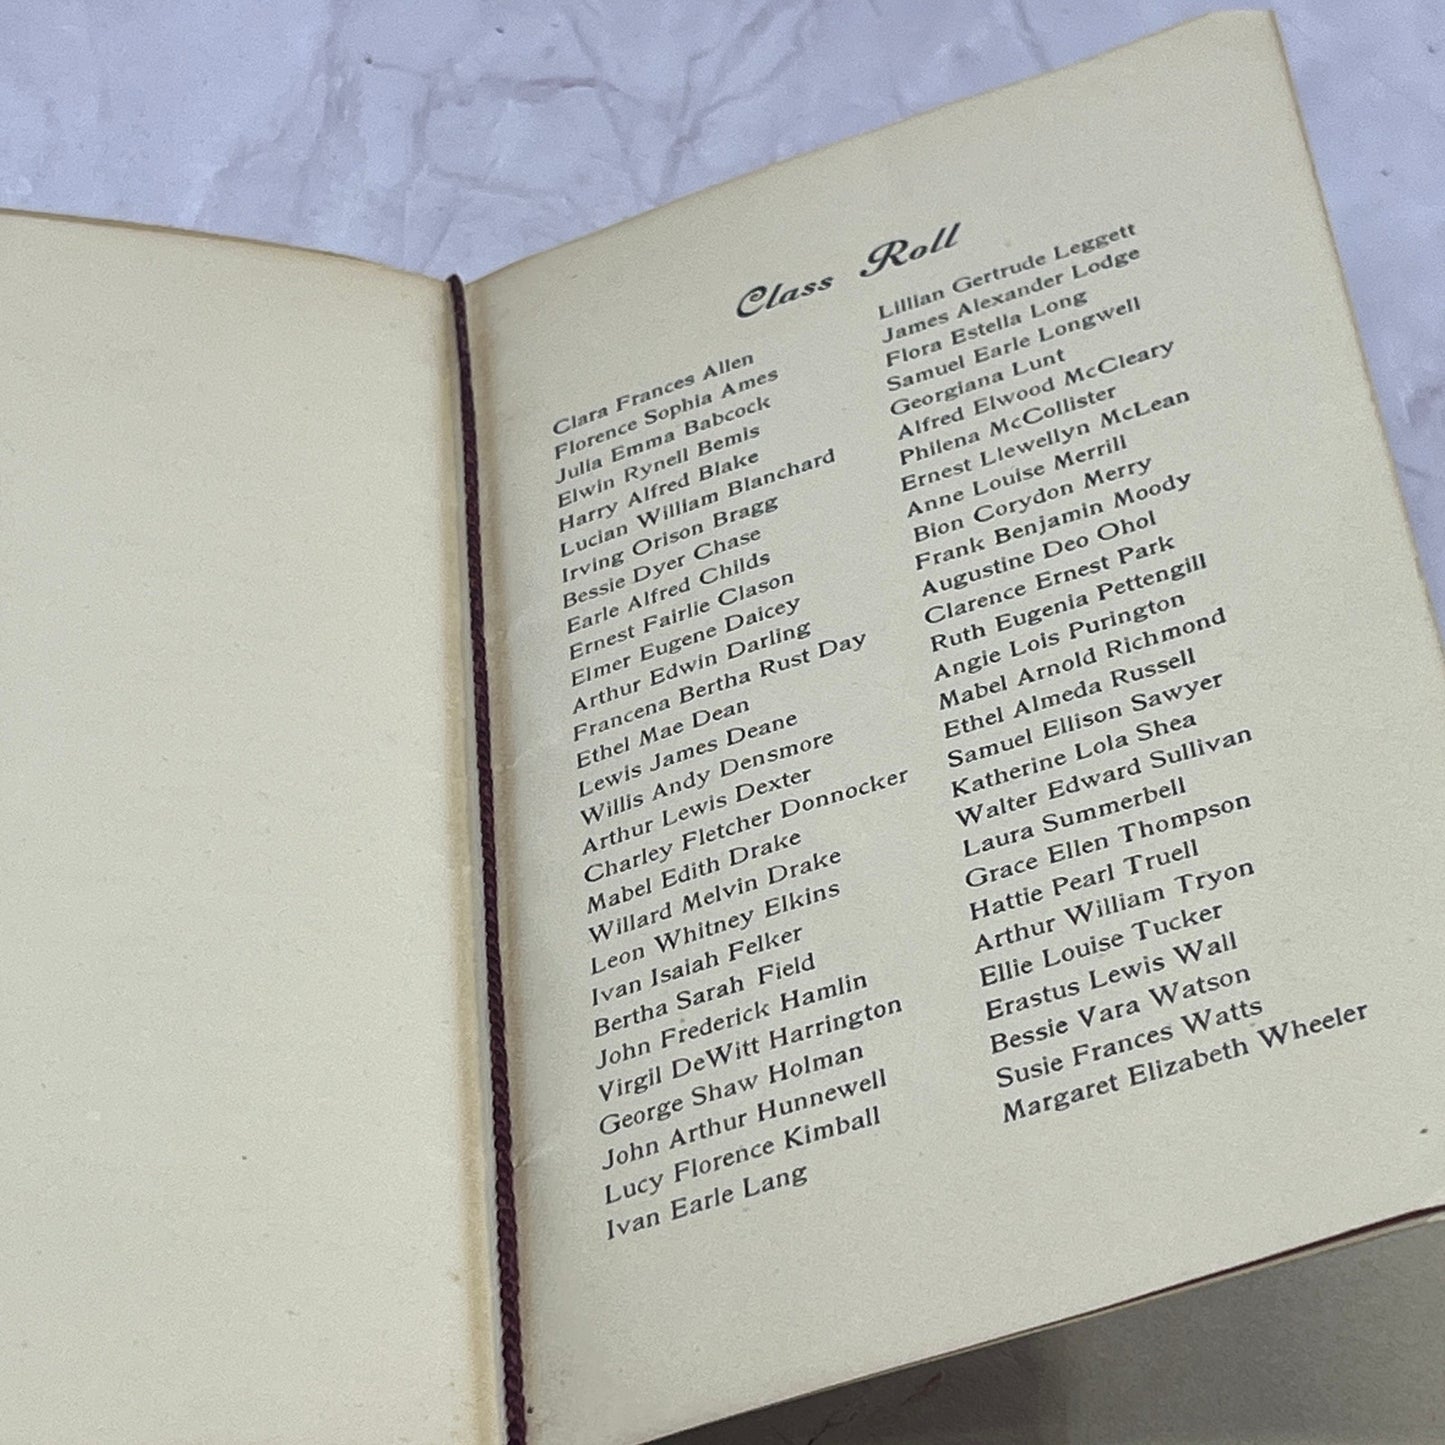 Class Roll
Clara Frances Allen
Florence Sophia Ames
Julia Emma Babcock
Elwin Rynell Bemis
Harry Alfred Blake
Lucian William Blanchard
Irving Orison Bragg
Bessie Dyer Chase
Earle Alfred Childs
Ernest Fairlie Clason
Elmer Eugene Daicey
Arthur Edwin Darling
Francena Bertha Rust Day
Ethel Mae Dean
Lewis James Deane
Willis Andy Densmore
Arthur Lewis Dexter
Charley Fletcher Donnocker
Mabel Edith Drake
Willard Melvin Drake
Leon Whitney Elkins
Ivan Isaiah Felker
Bertha Sarah Field
John Frederick Hamlin
Virgil DeWitt Harrington
George Shaw Holman
John Arthur Hunnewell
Lucy Florence Kimball
Ivan Earle Lang
Lillian Gertrude Leggett
James Alexander Lodge
Flora Estella Long
Samuel Earle Longwell
Georgiana Lunt
Alfred Elwood McCleary
Philena McCollister
Ernest Llewellyn McLean
Anne Louise Merrill
Bion Corydon Merry
Frank Benjamin Moody
Augustine Deo Ohol
Clarence Ernest Park
Ruth Eugenia Pettengill
Angie Lois Purington
Mabel Arnold Richmond
Ethel Almeda Russell
Samuel Ellison Sawyer
Katherine Lola Shea
Walter Edward Sullivan
Laura Summerbell
Grace Ellen Thompson
Hattie Pearl Truell
Arthur William Tryon
Ellie Louise Tucker
Erastus Lewis Wall
Bessie Vara Watson
Susie Frances Watts
Margaret Elizabeth Wheeler